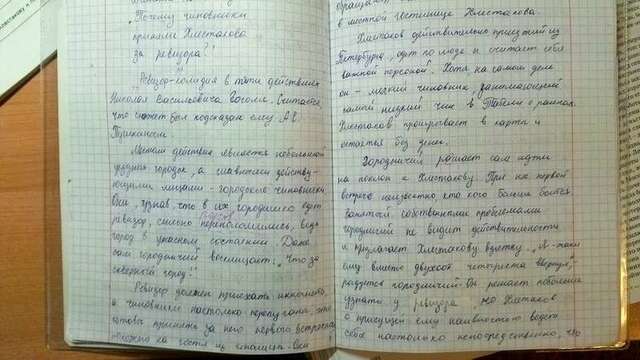 „Почему чиновники
приняли Хлестакова
за ревизора?"
„Ревизор"-комедия в пяти действиях
Николая Васильевича Гоголя. Считается,
что сюжет был подсказан ему А.С.
Пушкиным.
Местом действия является небольшой
уездный городок, а главными действу-
ющими лицами - городские чиновники
Они, узнав, что в их городишко едет
ревизор, сильно переполошились, ведь
город в ужасном состоянии. Даже
сам городничий восклицает: „Что за
скверный город!"
Ревизор должен приехать инкогнито,
а чиновники настолько перепуганы, что
готовы принять за него первого встречно
в местной гостинице Хлестакова.
Хлестаков действительно приезжий из
Петербурга, одет по моде и считает себя
важной персоной. Хотя на самом деле
он - мелкий чиновник, занимающий
самый низкий чин в Табели о рангах.
Хлестаков проигрывает в карты и
остается без денег.
Городничий решает сам идти
на поклон к Хлестакову. При их первой
встрече неизвестно, кто кого больше боится.
Занятый собственными проблемами
городничий не видит действительности
и предлагает Хлестакову взятку. „Я-таки
ему вместо двухсот четыреста ввернул",-
радуется городничий. Он решает побольше
узнать у ревизора, но Хлестаков
с присущей ему наивностью ведет
себя настолько непосредственно, что